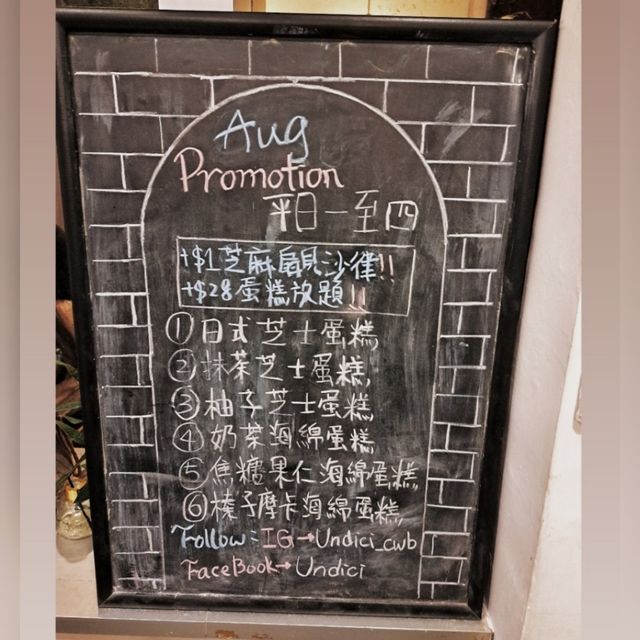 Aug
Promotion
平日一至四
+$1芝麻扇貝沙律!!
+$28蛋糕放題!!
①日式芝士蛋糕
②抹茶芝士蛋糕
③柚子芝士蛋糕
④奶茶海綿蛋糕
⑤焦糖果仁海綿蛋糕
⑥榛子摩卡海綿蛋糕
Follow: IG→Undici_cwb
FaceBook→Undici